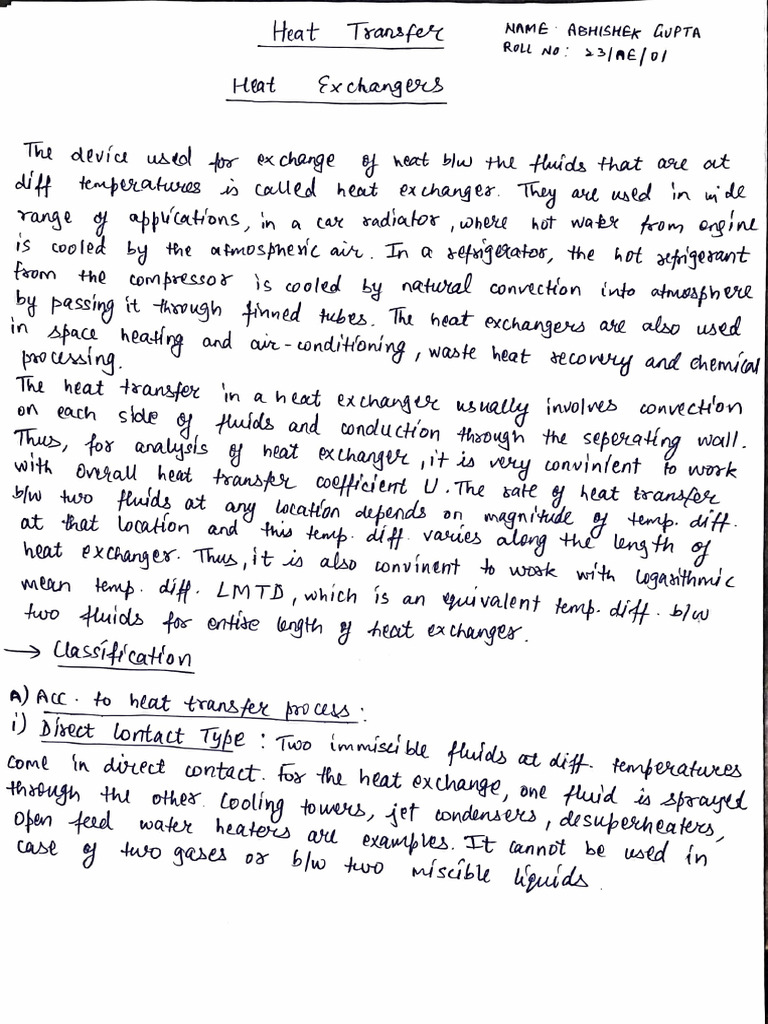 Heat Transfer
NAME: ABHISHEK GUPTA
ROLL NO: 23/AE/01
Heat Exchangers
The device used for exchange of heat b/w the fluids that are at
diff temperatures is called heat exchanger. They are used in wide
range of applications, in a car radiator, where hot water from engine
is cooled by the atmospheric air. In a refrigerator, the hot refrigerant
from the compressor is cooled by natural convection into atmosphere
by passing it through finned tubes. The heat exchangers are also used
in space heating and air-conditioning, waste heat recovery and chemical
processing.
The heat transfer in a heat exchanger usually involves convection
on each side of fluids and conduction through the seperating wall.
Thus, for analysis of heat exchanger, it is very convinient to work
with overall heat transfer coefficient U. The rate of heat transfer
b/w two fluids at any location depends on magnitude of temp. diff.
at that location and this temp. diff. varies along the length of
heat exchanger. Thus, it is also convinent to work with logarithmic
mean temp. diff. LMTD, which is an equivalent temp. diff. b/w
two fluids for entire length of heat exchanger.
→ Classification
A) Acc. to heat transfer process:
i) Direct Contact Type: Two immiscible fluids at diff. temperatures
come in direct contact. For the heat exchange, one fluid is sprayed
through the other. Cooling towers, jet condensers, desuperheaters,
open feed water heaters are examples. It cannot be used in
case of two gases or b/w two miscible liquids.